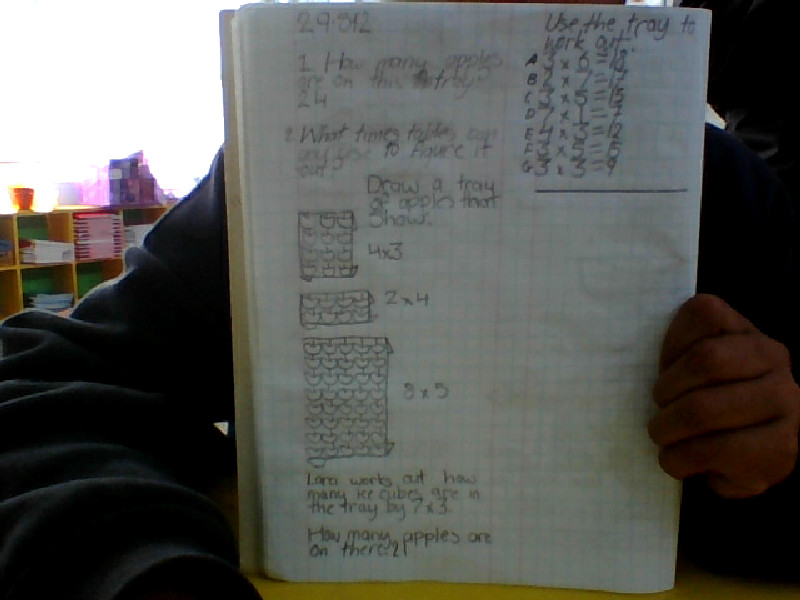 29.8.12
1. How many apples
are on this tray?
24
2. What times tables can
you use to figure it
out?
Draw a tray
of apples that
show.
4x3
2x4
8x5
Lara works out how
many ice cubes are in
the tray by 7x3.
How many apples are
on there? 21
Use the tray to
work out.
A
B
C
D
E 4 x 3 = 12
F
G 3 x 3 = 9